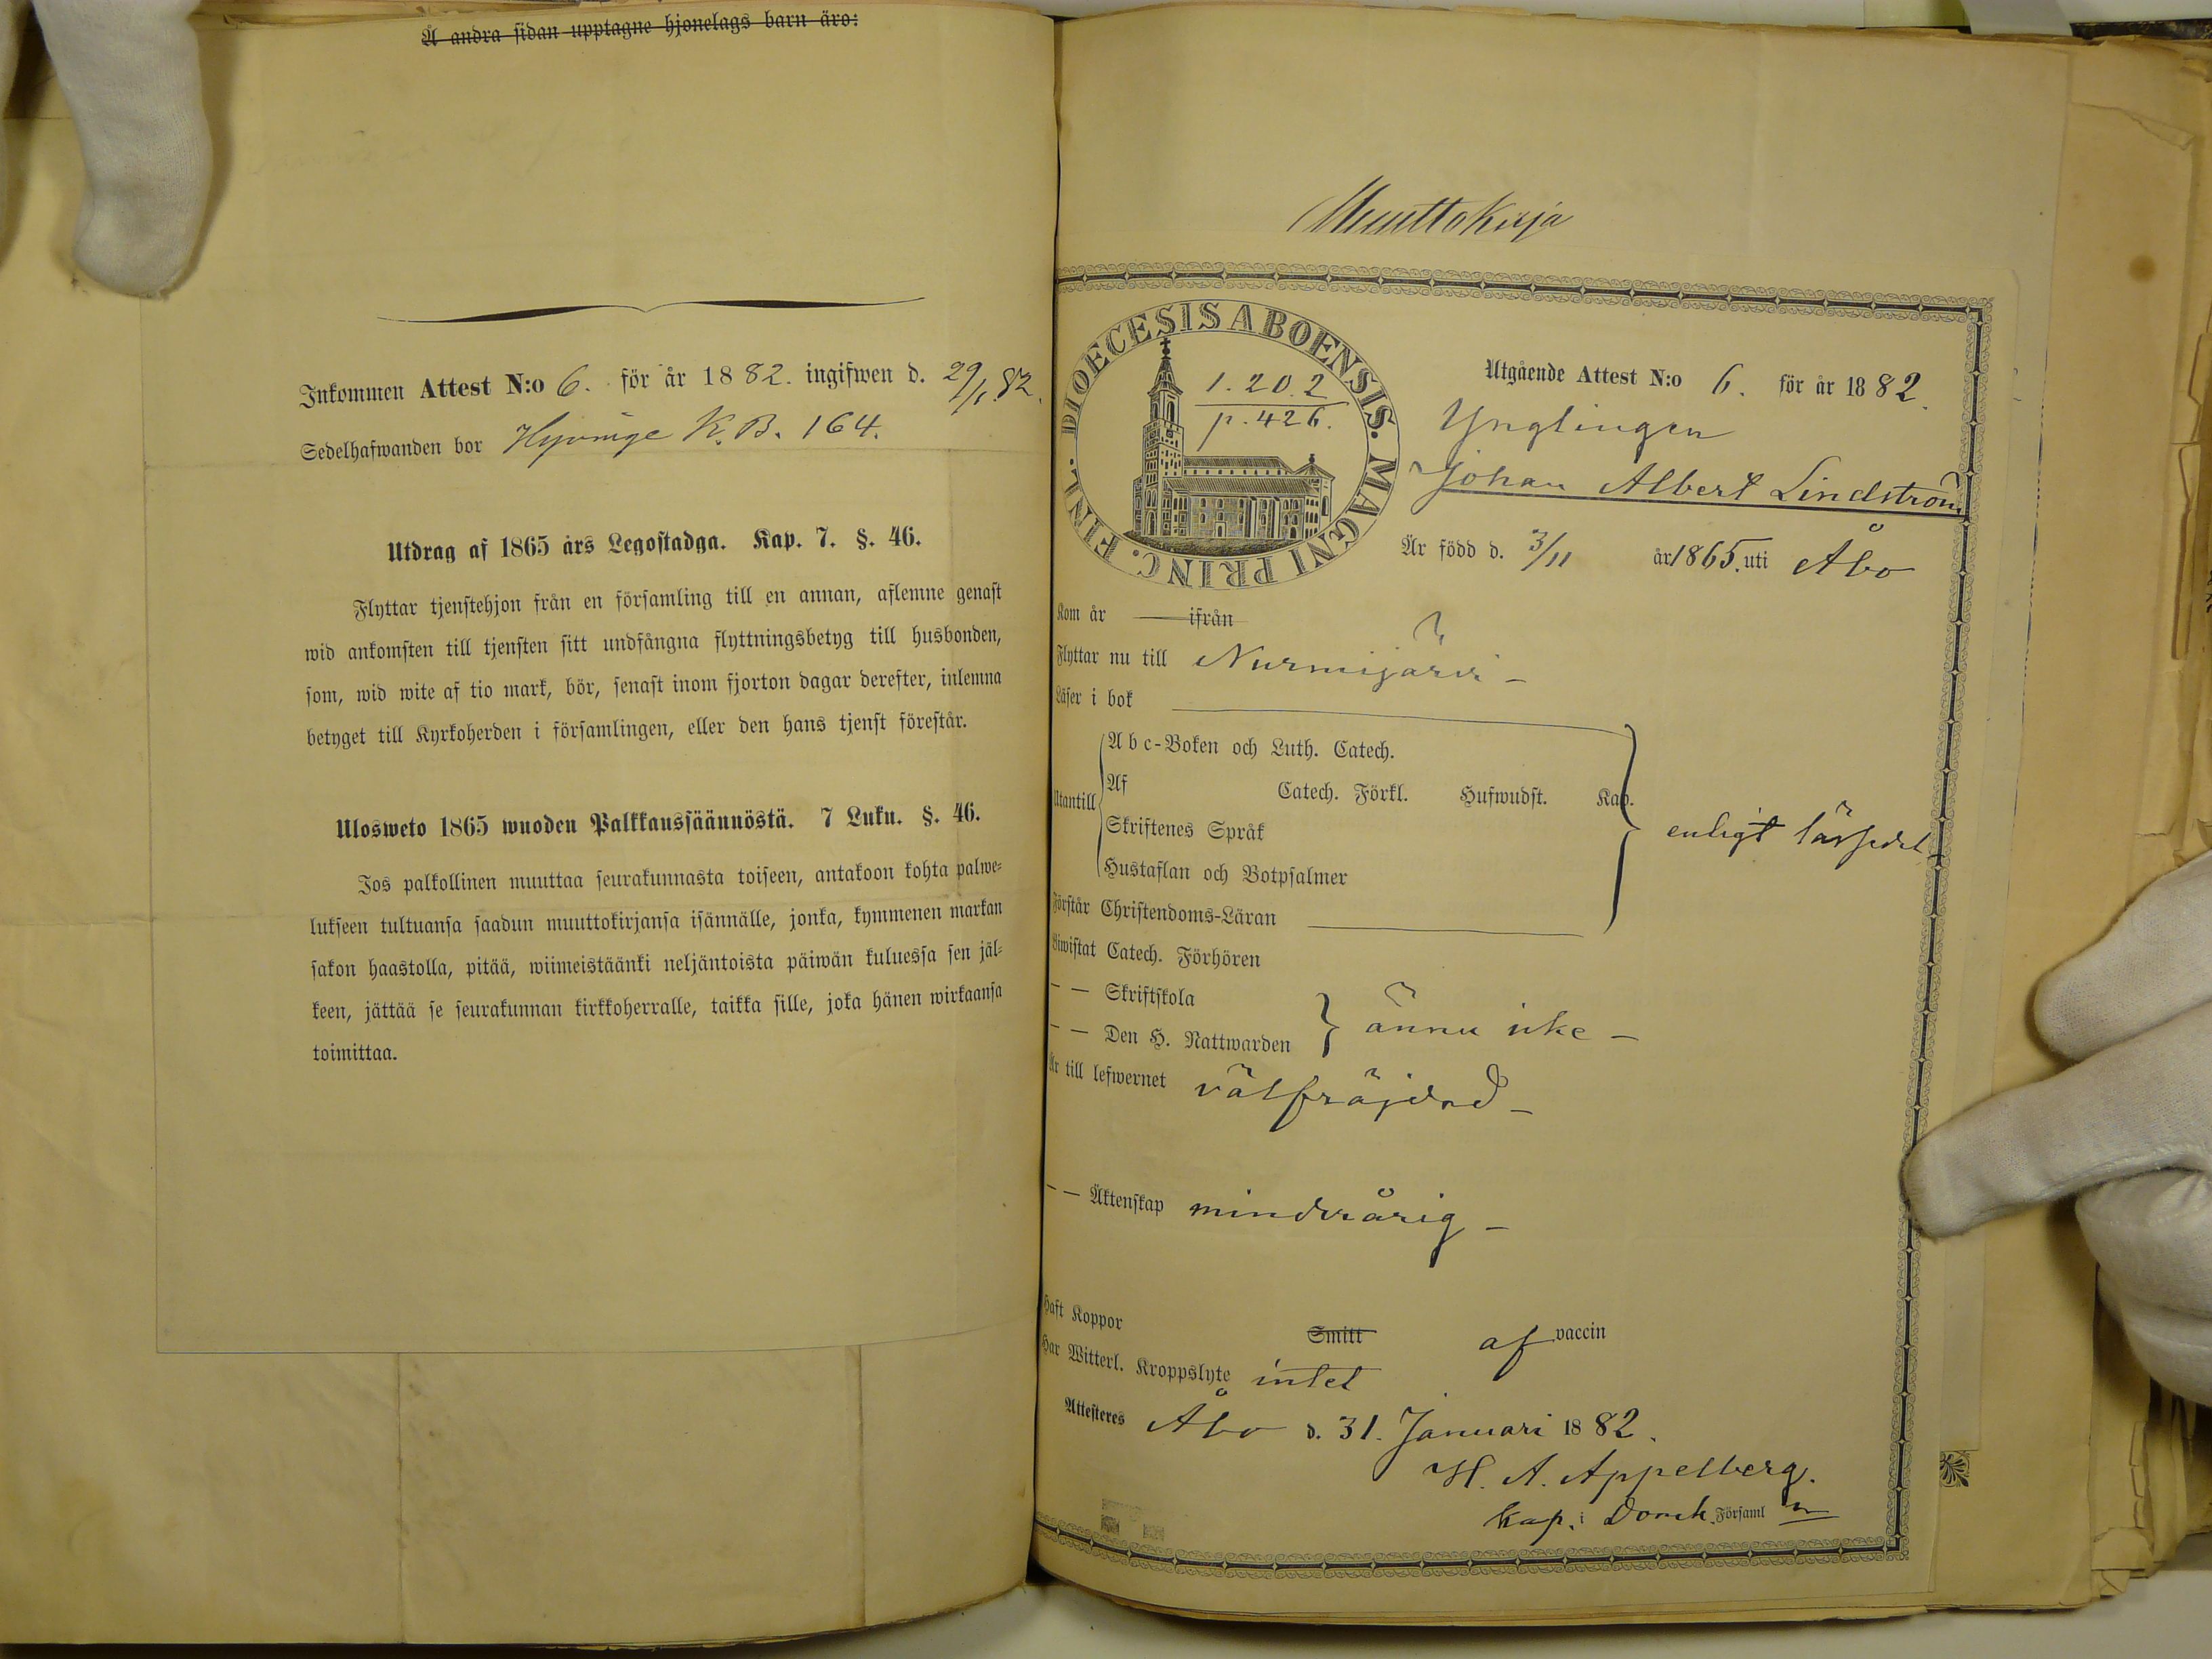 Å andra sidan upptagne hjonelags barn äro:
Inkommen Attest N:o 6. för år 1882. ingifwen d. 29/1.82.
Sedelhafwanden bor Hyvinge K.B. 164.
Utdrag af 1865 års Legostadga. Kap. 7. §. 46.
Flyttar tjenstehjon från en församling till en annan, aflemne genast
wid ankomsten till tjensten sitt undfångna flyttningsbetyg till husbonden,
som, wid wite af tio mark, bör, senast inom fjorton dagar derefter, inlemna
betyget till Kyrkoherden i församlingen, eller den hans tjenst förestår.
Ulosweto 1865 wuoden Palkkaussäännöstä. 7 Luku. §. 46.
Jos palkollinen muuttaa seurakunnasta toiseen, antakoon kohta palwe-
lukseen tultuansa saadun muuttokirjansa isännälle, jonka, kymmenen markan
sakon haastolla, pitää, wiimeistäänki neljäntoista päiwän kuluessa sen jäl-
keen, jättää se seurakunnan kirkkoherralle, taikka sille, joka hänen wirkaansa
toimittaa.
Muuttokirja
DIOECESIS ABOENSIS. MAGNI PRINC. FINL.
1.20.2
p. 426.
Utgående Attest N:o 6. för år 1882.
Ynglingen
Johan Albert Lindström
Är född d. 3/11 år 1865. uti Åbo
Kom år ifrån
Flyttar nu till Nurmijärvi
Läser i bok
Utantill
Abc-Boken och Luth. Catech.
Af Catech. Förkl. Hufwudst. Kap.
Skriftenes Språk
Hustaflan och Botpsalmer
enligt lässedel
Förstår Christendoms-Läran
Biwistat Catech. Förhören
— — Skriftskola
— — Den H. Nattwarden
ännu icke —
Är till lefwernet välfräjdad —
— — Äktenskap minderårig —
Haft Koppor Smitt af vaccin
Har Witterl. Kroppslyte intet
Attesteres Åbo d. 31. Januari 1882.
H. A. Appelberg.
Kap. i Domk. Församl